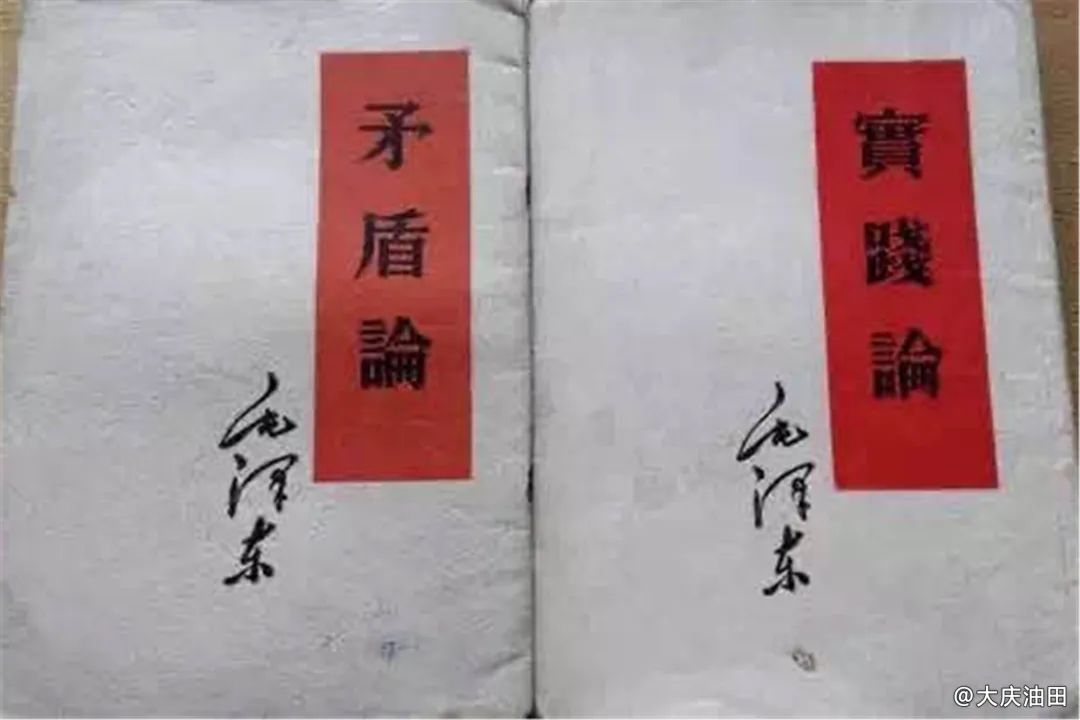 矛盾論
毛泽东
實踐論
毛泽东
@大庆油田